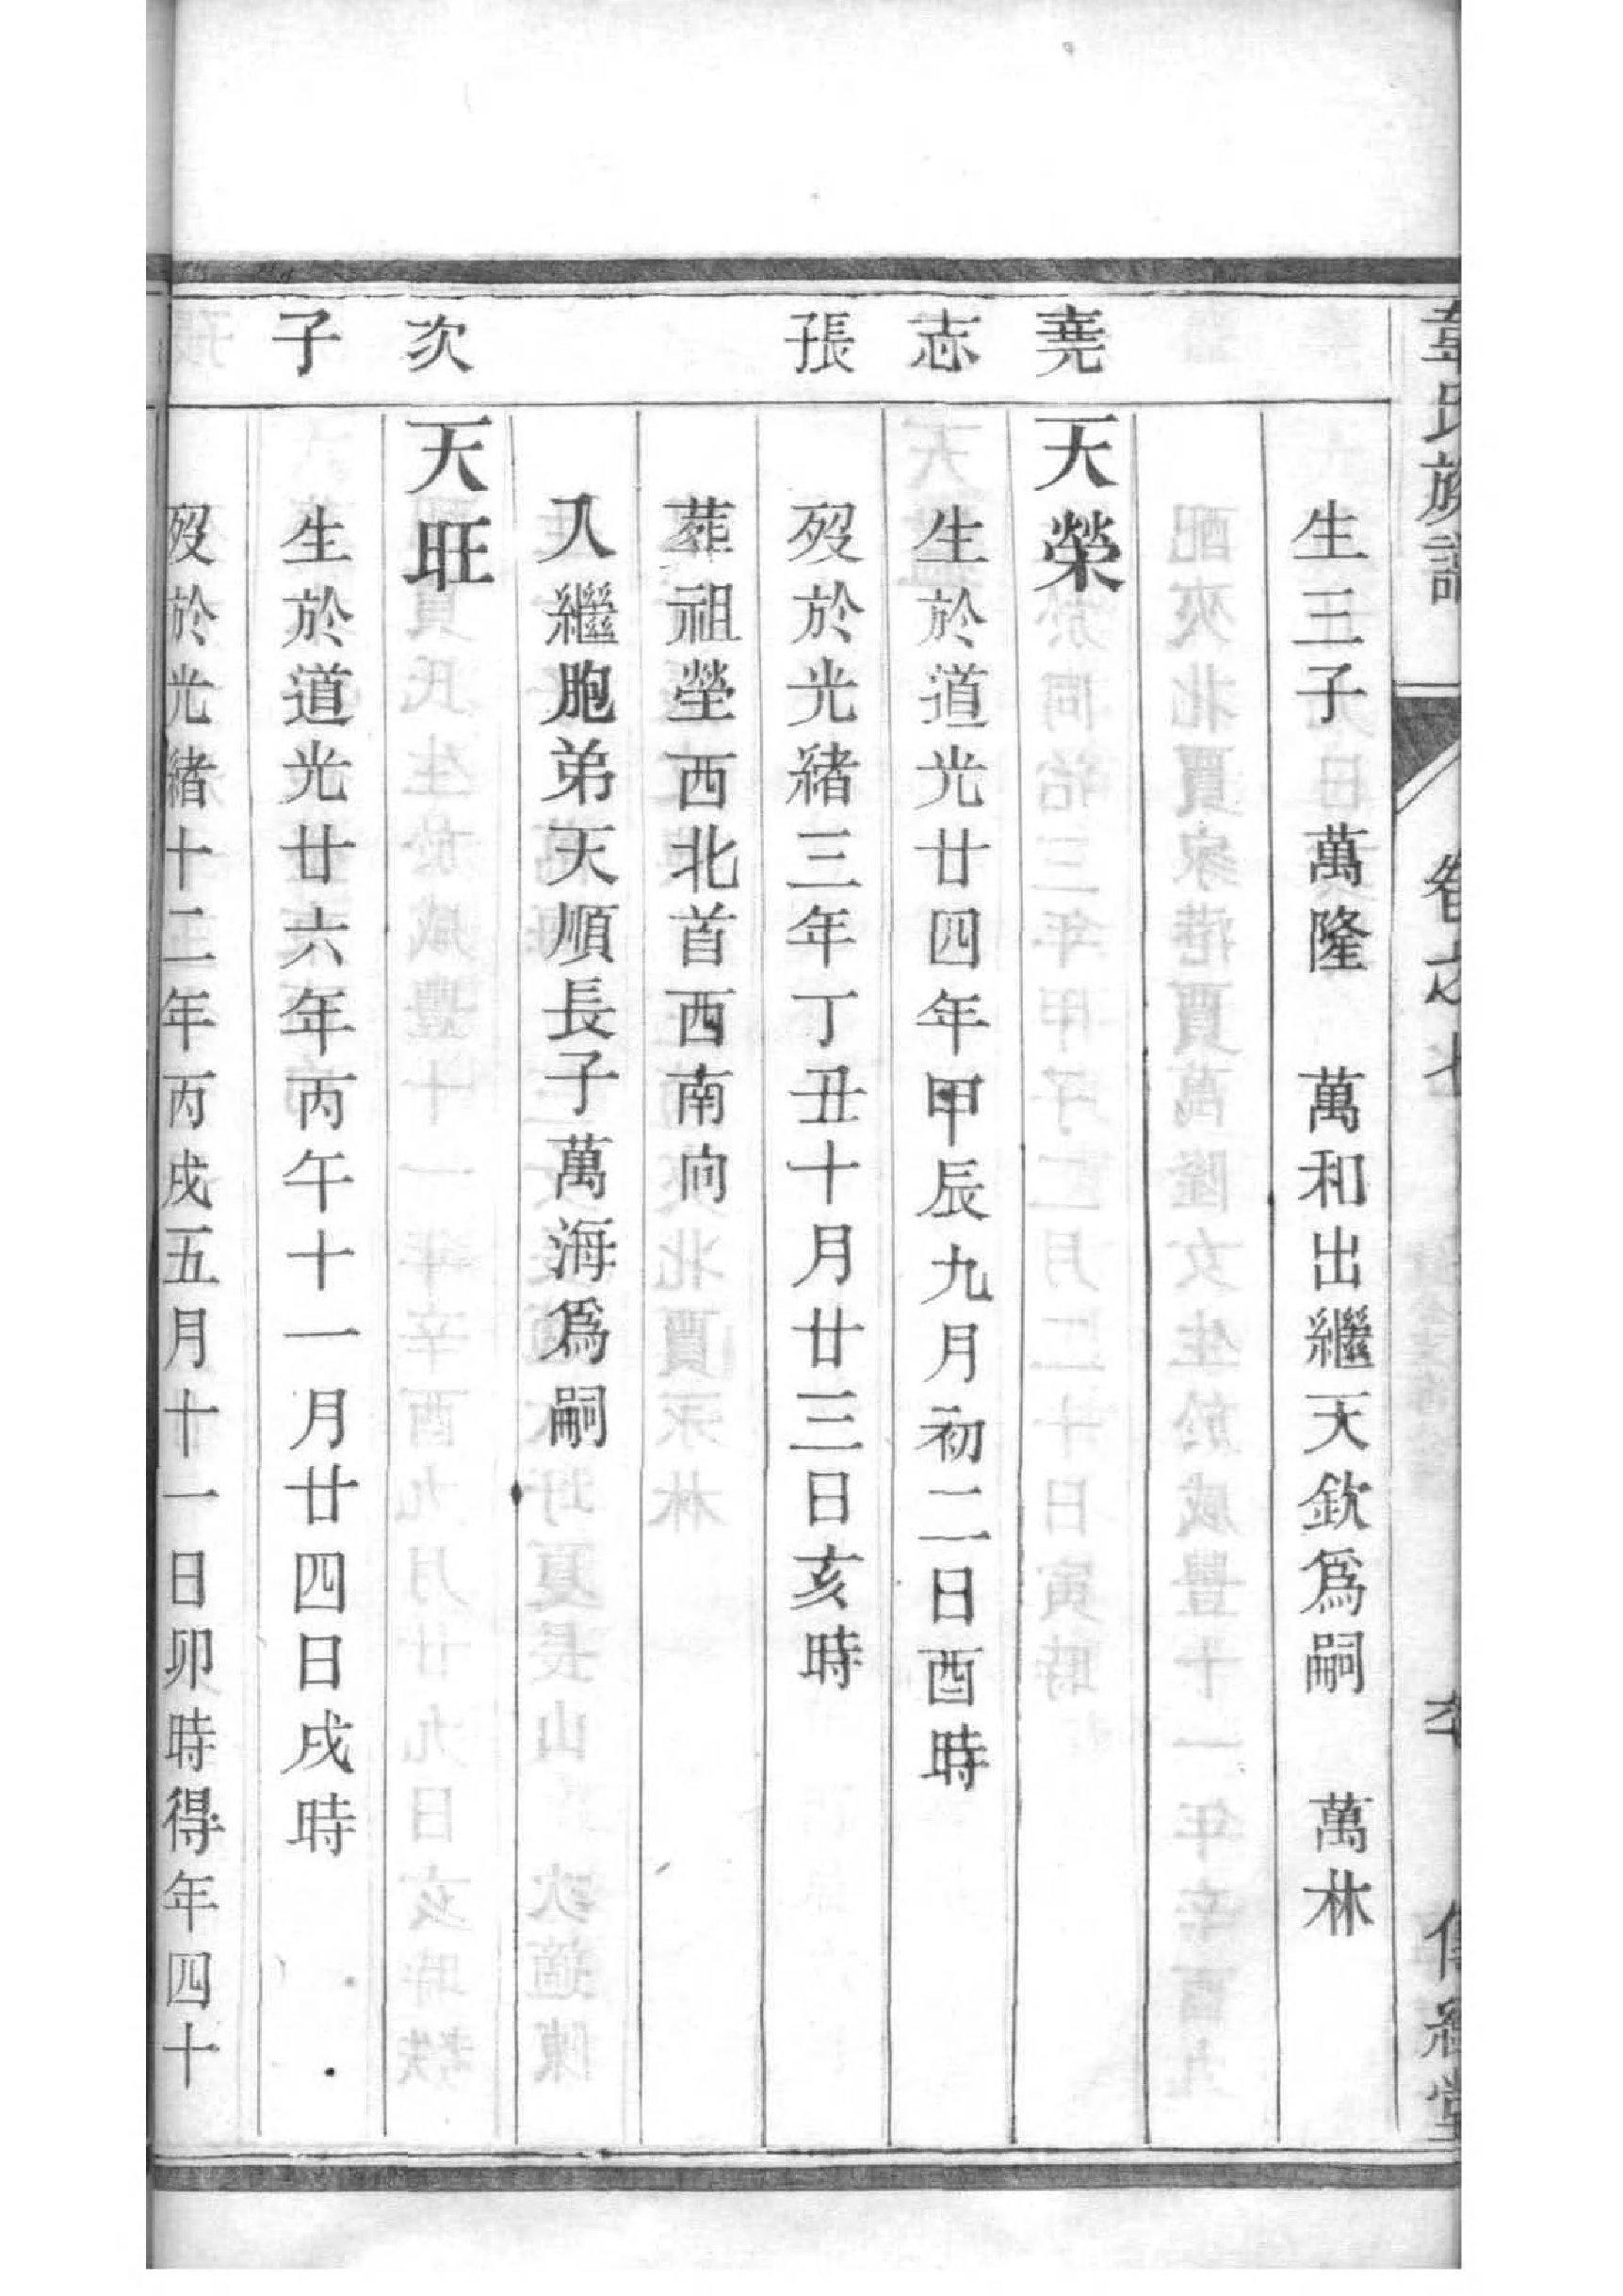 氏族譜
卷之七
生三子 萬隆 萬和出繼天欽爲嗣 萬林
堯
天榮
志
生於道光廿四年甲辰九月初二日酉時
張
歿於光緒三年丁丑十月廿三日亥時
葬祖塋西北首西南向
入繼胞弟天順長子萬海爲嗣
次
天旺
子
生於道光廿六年丙午十一月廿四日戌時
歿於光緒十二年丙戌五月十一日卯時得年四十